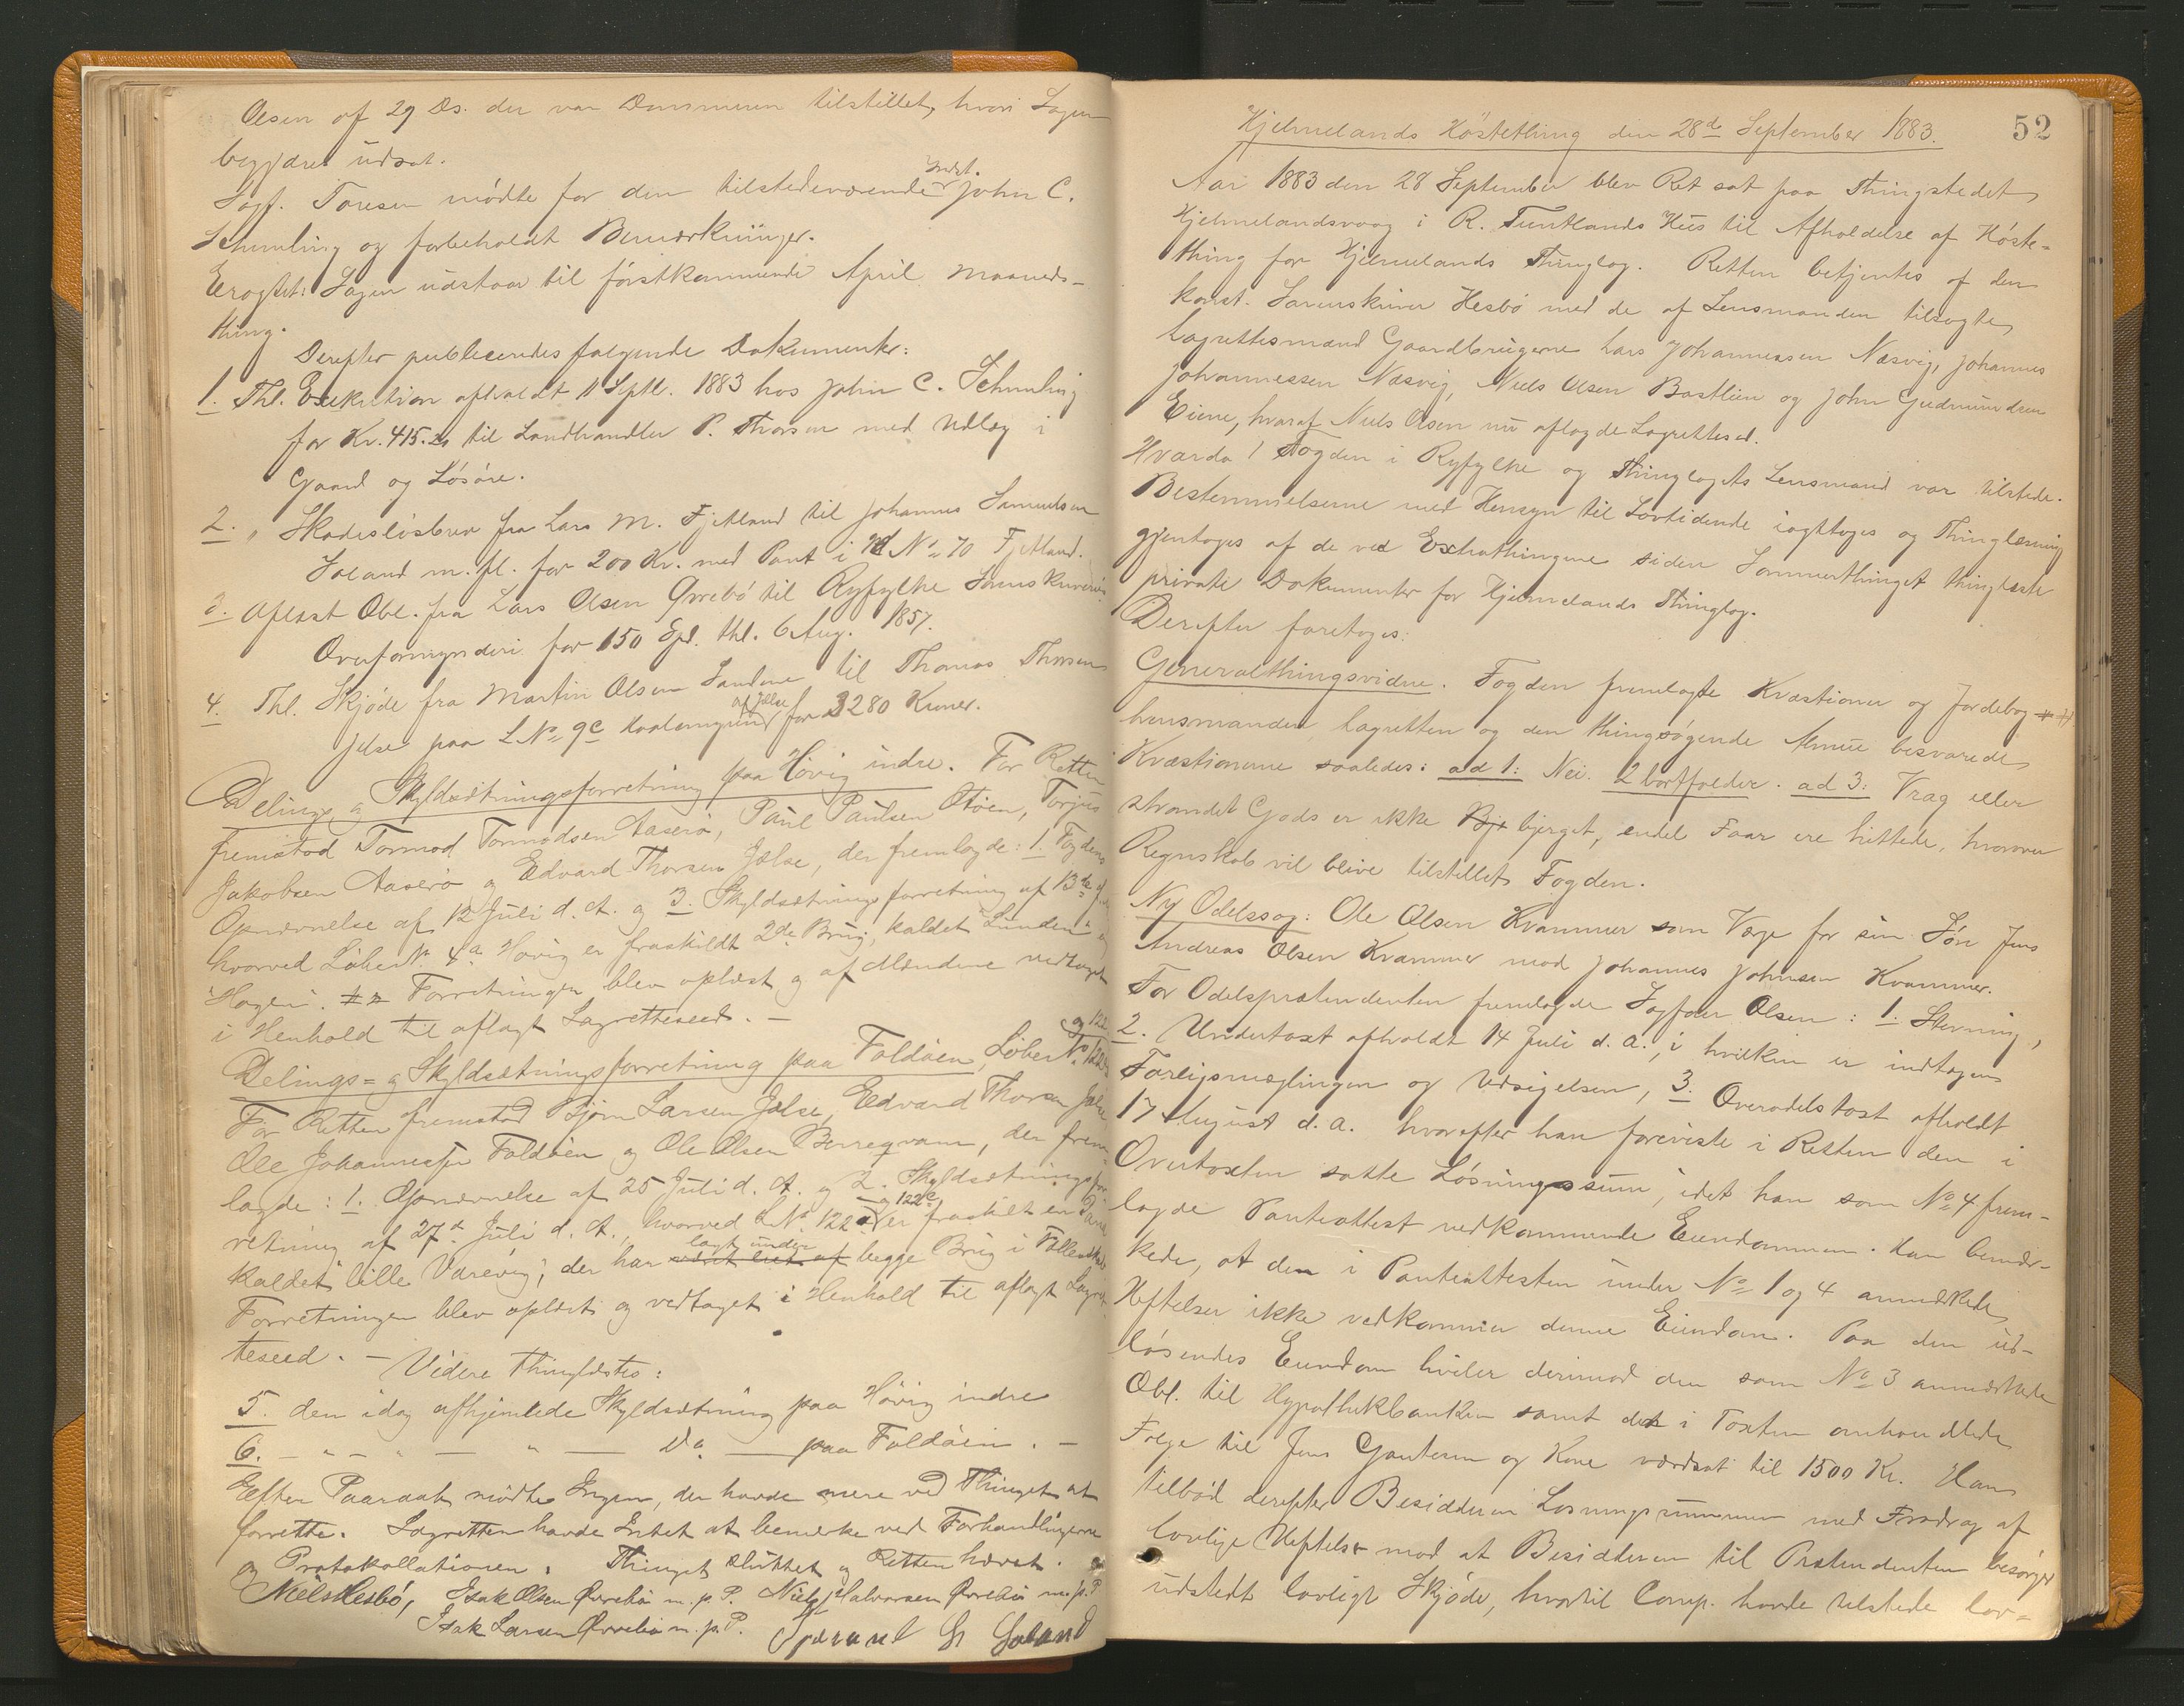 Olsen af 29 Ds. der var Dommeren tilstillet, hvori Sagen
begjæres udsat.
Sagf. Toresen mødte for den tilstedeværende Indst. John C.
Schmling og forbeholdt Bemærkninger.
Eragtet: Sagen udstaar til førstkommende April Maaneds-
thing.
Derefter publiceredes følgende Dokumenter:
1. Thl. Exekution afholdt 11 Septb. 1883 hos John C. Schmling
for Kr. 415. til Landhandler P. Thorsen med Udlæg i
Gaard og Løsøre.
2. " Skadesløsbrev fra Lars M. Fjetland til Johannes Simundsen
Joland m. fl. for 200 Kr. med Pant i M No 70 Fjetland.
3. Aflæst Obl. fra Lars Olsen Ørrebø til Ryfylke Sorenskriveries
Overformynderi for 150 Spd. thl. 6 Aug. 1857.
4. Thl. Skjøde fra Martin Olsen Sandene til Thomas Thorsen
Jelse paa L No 9c af Jelse for 3280 Kroner.
Delings og Skyldsætningsforretning paa Høvig indre. For Retten
fremstod Tormod Tormodsen Aaserø, Paul Paulsen Otøen, Torjus
Jakobsen Aaserø og Edvard Thorsen Jelse, der fremlagde: 1. Fogdens
Opnævnelse af 12 Juli d. A. og 2. Skyldsætningsforretning af 13de
hvorved Løbe No 4a Høvig er fraskildt 2de Brug, kaldet "Lunden" og
"Hagen". Forretningen blev oplæst og af Mændene vedtaget
i Henhold til aflagt Lagretteseed. -
Delings- og Skyldsætningsforretning paa Foldøen, Løbe No 122 og 122
For Retten fremstod Bjørn Larsen Jelse, Edvard Thorsen Jelse
Ole Johannessen Foldøen og Ole Olsen Berreqvam, der frem-
lagde: 1. Opnævnelse af 25 Juli d. A. og 2. Skyldsætningsfor-
retning af 27de Juli d. A., hvorved L No 122 og 122c er fraskilt en Part
kaldet "lille Varevig", der har lagt under begge Brug i Fællesskab
Forretningen blev oplæst og vedtaget i Henhold til aflagt Lagret-
teseed. - Videre thinglæstes:
5. den idag afhjemlede Skyldsætning paa Høvig indre
6. - " - " - " - Do - paa Foldøen. -
Efter Paaraab mødte Ingen, der havde mere ved Thinget at
forrette. Lagretten havde Intet at bemærke ved Forhandlingerne
og Protokollationen. Thinget sluttet og Retten hævet.
Niels Hesbø, Isak Olsen Ørrebø m. p. P. Niels Halvorsen Ørrebø m. p. P.
Isak Larsen Ørrebø m. p. P.
52
Hjelmelands Høstething den 28de September 1883.
Aar 1883 den 28 September blev Ret sat paa Thingstedet
Hjelmelandsvaag i R. Tuntlands Hus til Afholdelse af Høste-
thing for Hjelmelands Thinglag. Retten betjentes af den
konst. Sorenskriver Hesbø med de af Lensmanden tilsagte
Lagrettesmænd Gaardbrugerne Lars Johannessen Næsvig, Johannes
Johannessen Næsvig, Niels Olsen Bastlien og John Gudmundsen
Eiene, hvoraf Niels Olsen nu aflagde Lagretteseed.
Hvorda! Fogden i Ryfylke og Thinglagets Lensmand var tilstede.
Bestemmelserne med Hensyn til Lovtidende iagttoges og Thinglæsning
gjentoges af de ved Extrathingene siden Sommerthinget thinglæste
private Dokumenter for Hjelmelands Thinglag.
Derefter foretoges:
Generalthingsvidne. Fogden fremlagte Kvæstioner og Jordebog
Lensmanden, Lagretten og den thingsøgende Almue besvarede
Kvæstionerne saaledes: ad 1: Nei. 2 bortfalder. ad 3: Vrag eller
strandet Gods er ikke bjerget, endel Faar ere hittede, hvorover
Regnskab vil blive tilstillet Fogden.
Ny Odelssag: Ole Olsen Kvammer som Verge for sin Søn Jens
Andreas Olsen Kvammer mod Johannes Johnsen Kvammer.
For Odelsprætendenten fremlagde Sagfører Olsen: 1. Stevning,
2. Undertaxt afholdt 14 Juli d. A., i hvilken er indtagen
Forligsmæglingen og Udsigelsen, 3. Overodelstaxt afholdt
17 August d. A. hvorefter han foreviste i Retten den i
Overtaxten satte Løsningssum, idet han som No 4 frem-
lagde Panteattest vedkommende Eiendommen. Han bemær-
kede, at den i Panteattesten under No 1 og 4 anmærkede
Heftelser ikke vedkommer denne Eiendom. Paa den ud-
løsendes Eiendom hviler derimod den som No 3 anmærkede
Obl. til Hypothekbanken samt det i Taxten omhandlede
Følge til Jens Gautesen og Kone værdsat til 1500 Kr. Han
tilbød derefter Besidderen Løsningssummen med Fradrag af
lovlige Heftelser mod at Besidderen til Prætendenten besørger
udstedt lovligt Skjøde, hvortil Comp. havde tilstede lov-